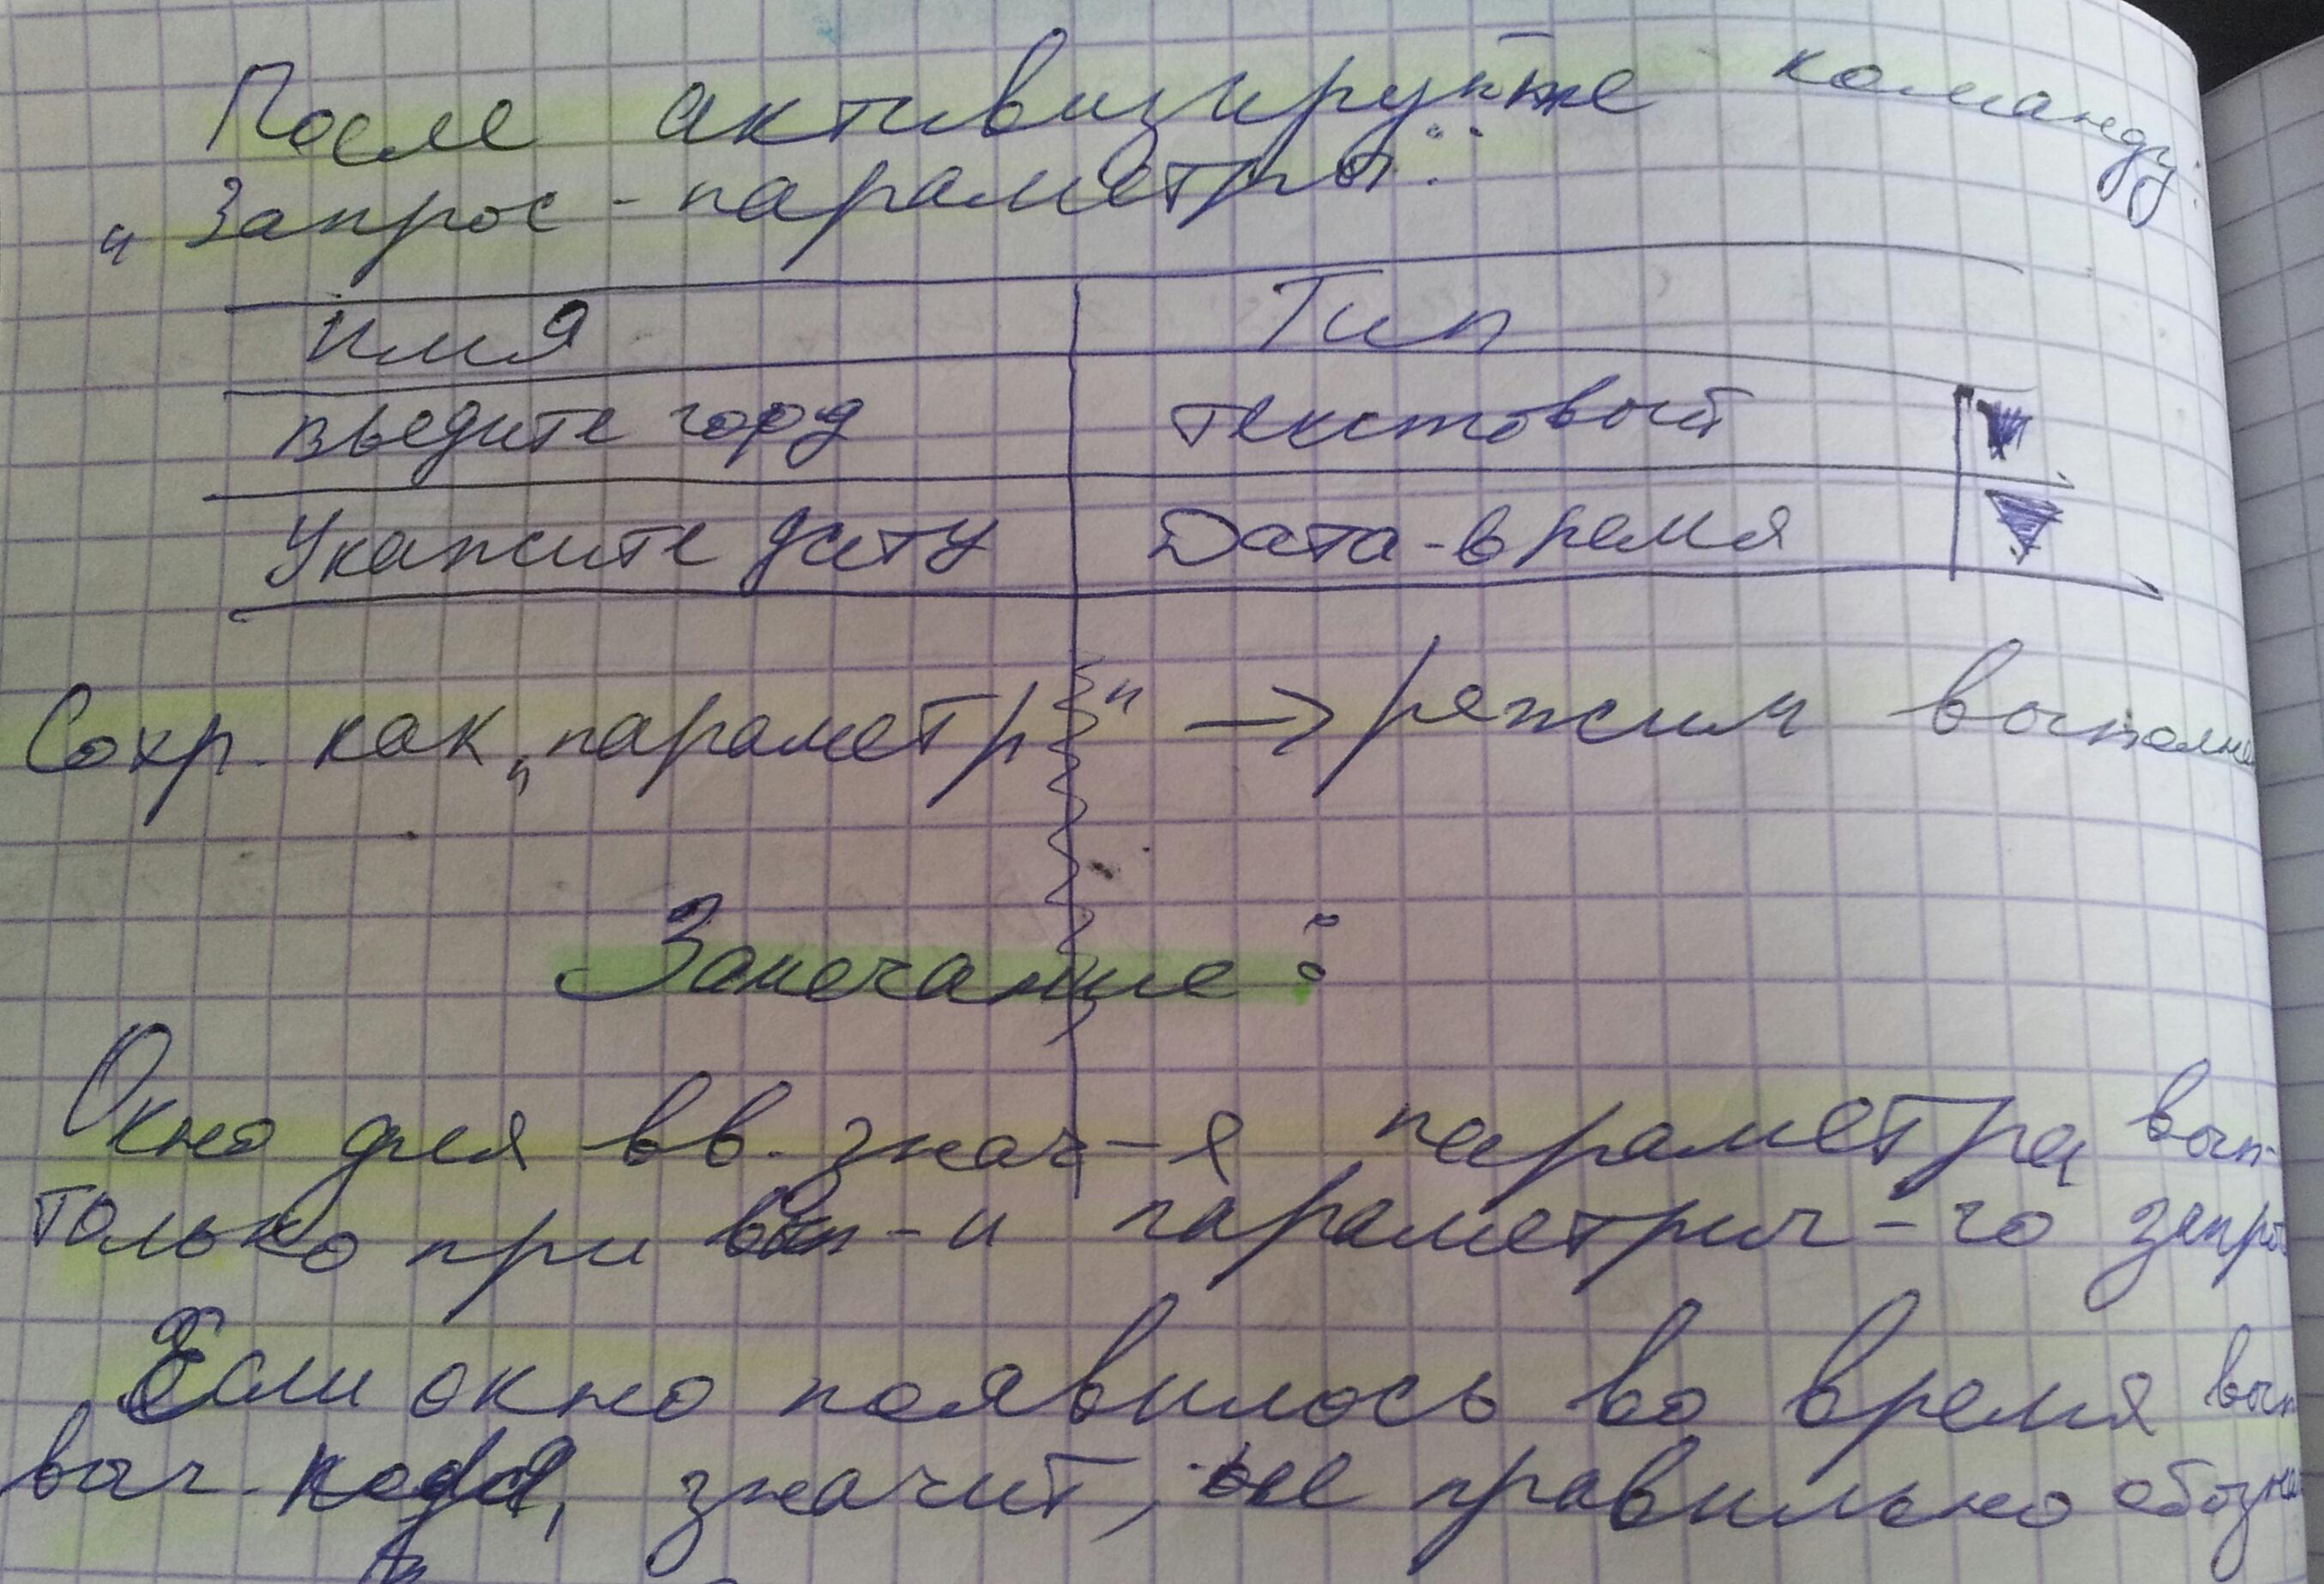 После активизируйте команду:
„Запрос - параметры":
Имя Тип
введите горд текстовый
Укажите дату Дата-время
Сохр. как „параметр" → режим выполне
Замечание:
Окно для вв. знач-я параметра вып-
только при вып-и параметрич-го запро
Если окно появилось во время вып
выч. значит, не правильно обозна